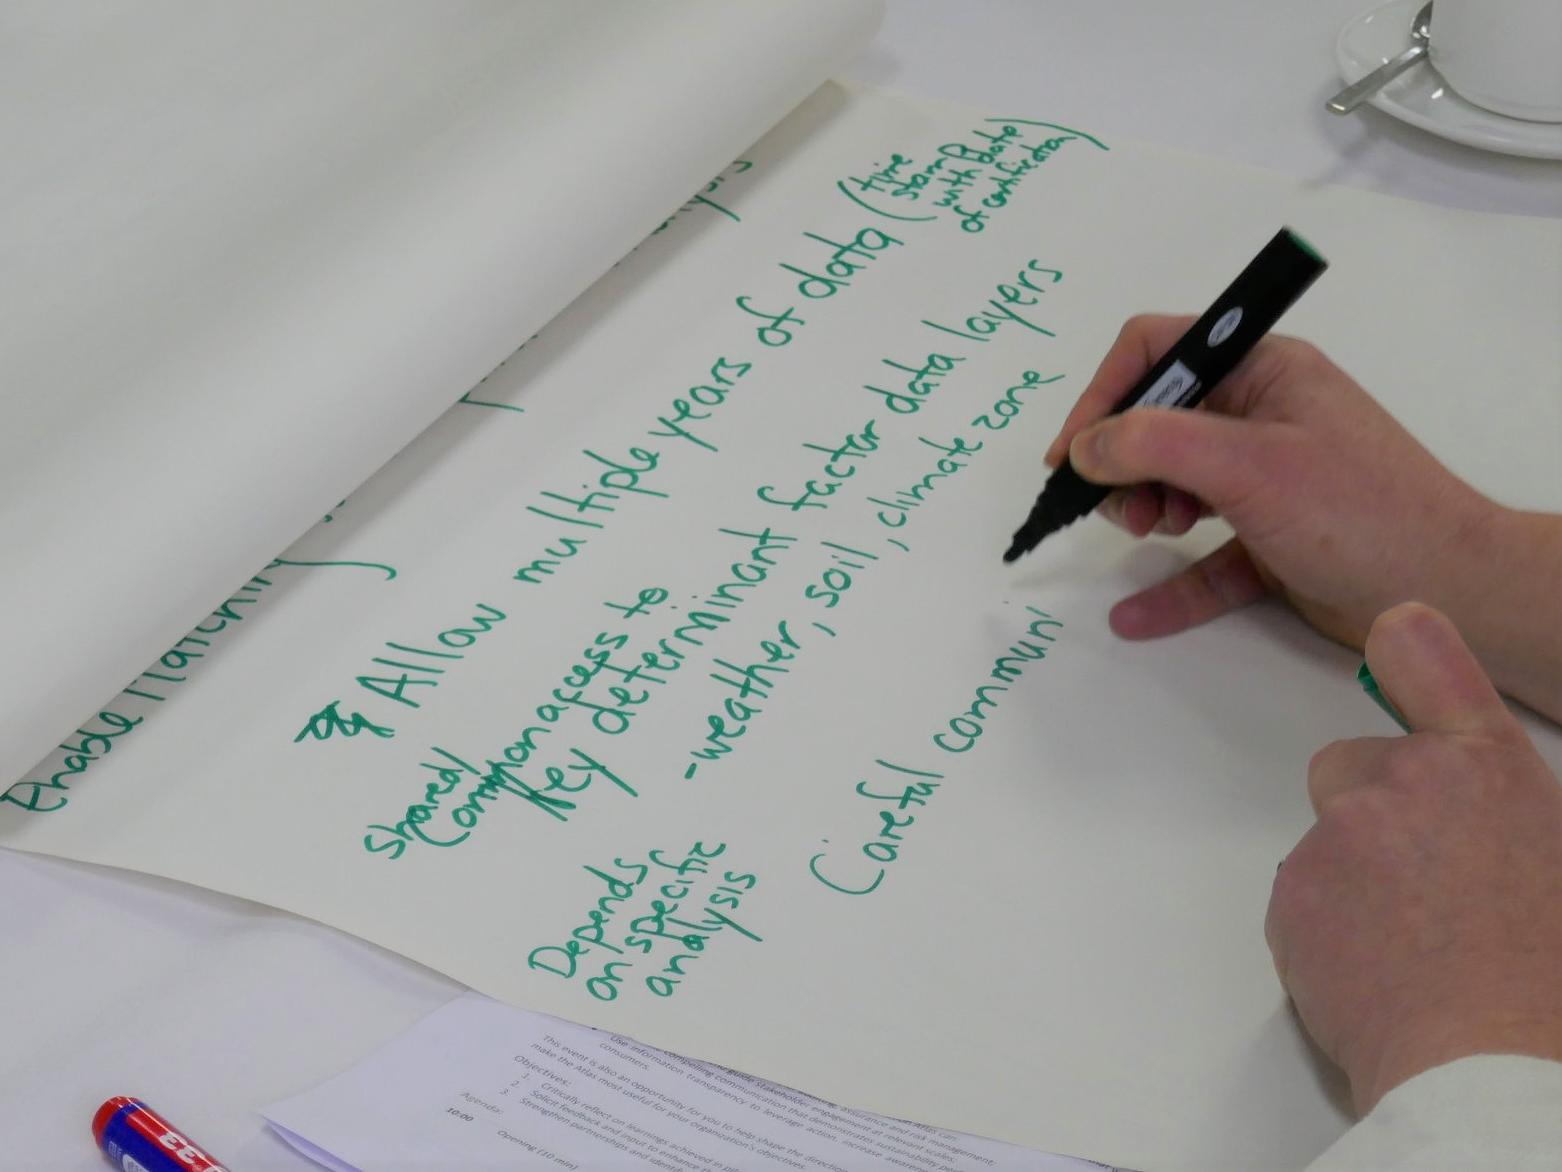 Enable Matching
Allow multiple years of data (time
stamp
with date
of certification)
shared/
Common access to
key determinant factor data layers
-weather, soil, climate zone
Depends
on specific
analysis
Careful communi
Use information transparency to leverage action, increase
consumers.
This event is also an opportunity for you to help shape the direction
make the Atlas most useful for your organization's objectives.
Objectives:
1. Critically reflect on learnings achieved in
2. Solicit feedback and input to enhance the
3. Strengthen partnerships and
Agenda:
10:00
Opening (10 min)
33